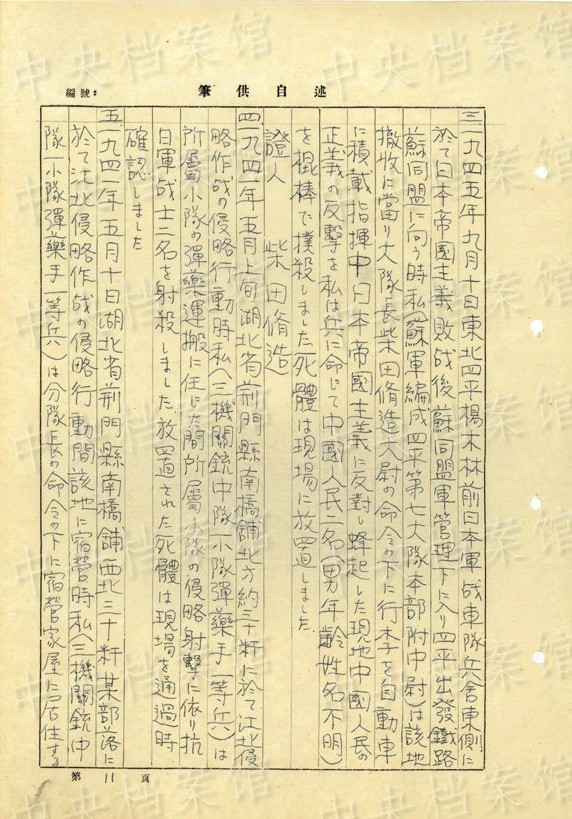 編號：
筆供自述
三一九四五年九月十日東北四平楊木林前日本軍战車隊兵舍東側に
於て日本帝國主義敗战後蘇同盟軍管理下に入り四平出發鐵路
蘇同盟に向う時私(蘇軍編成四平第七大隊本部附中尉)は該地
撤收に當り大隊長柴田脩造大尉の命令の下に行李を自動車
に積載指揮中日本帝國主義に反對し蜂起した現地中國人民の
正義の反擊を私は兵に命じて中國人民一名(男年齡姓名不明)
を棍棒で撲殺しました死體は現場に放置しました.
證人 柴田脩造
四一九四二年五月上旬湖北省荊門縣南橋舖北方約三十粁に於て江北侵
略作战の侵略行動時私(三機關銃中隊一小隊彈藥手一等兵)は
所屬小隊の彈藥運搬に任じた間所屬小隊の侵略射擊に依り抗
日軍战士二名を射殺しました放置された死體は現場を通過時
確認しました
五一九四二年五月十日湖北省荊門縣南橋舖西北三十粁某部落に
於て江北侵略作战の侵略行動間該地に宿營時私(三機關銃中
隊一小隊彈藥手一等兵)は分隊長の命令の下に宿營家屋に居住する
第 11 頁
中央档案馆
中央档案馆
中央档案馆
中央档案馆